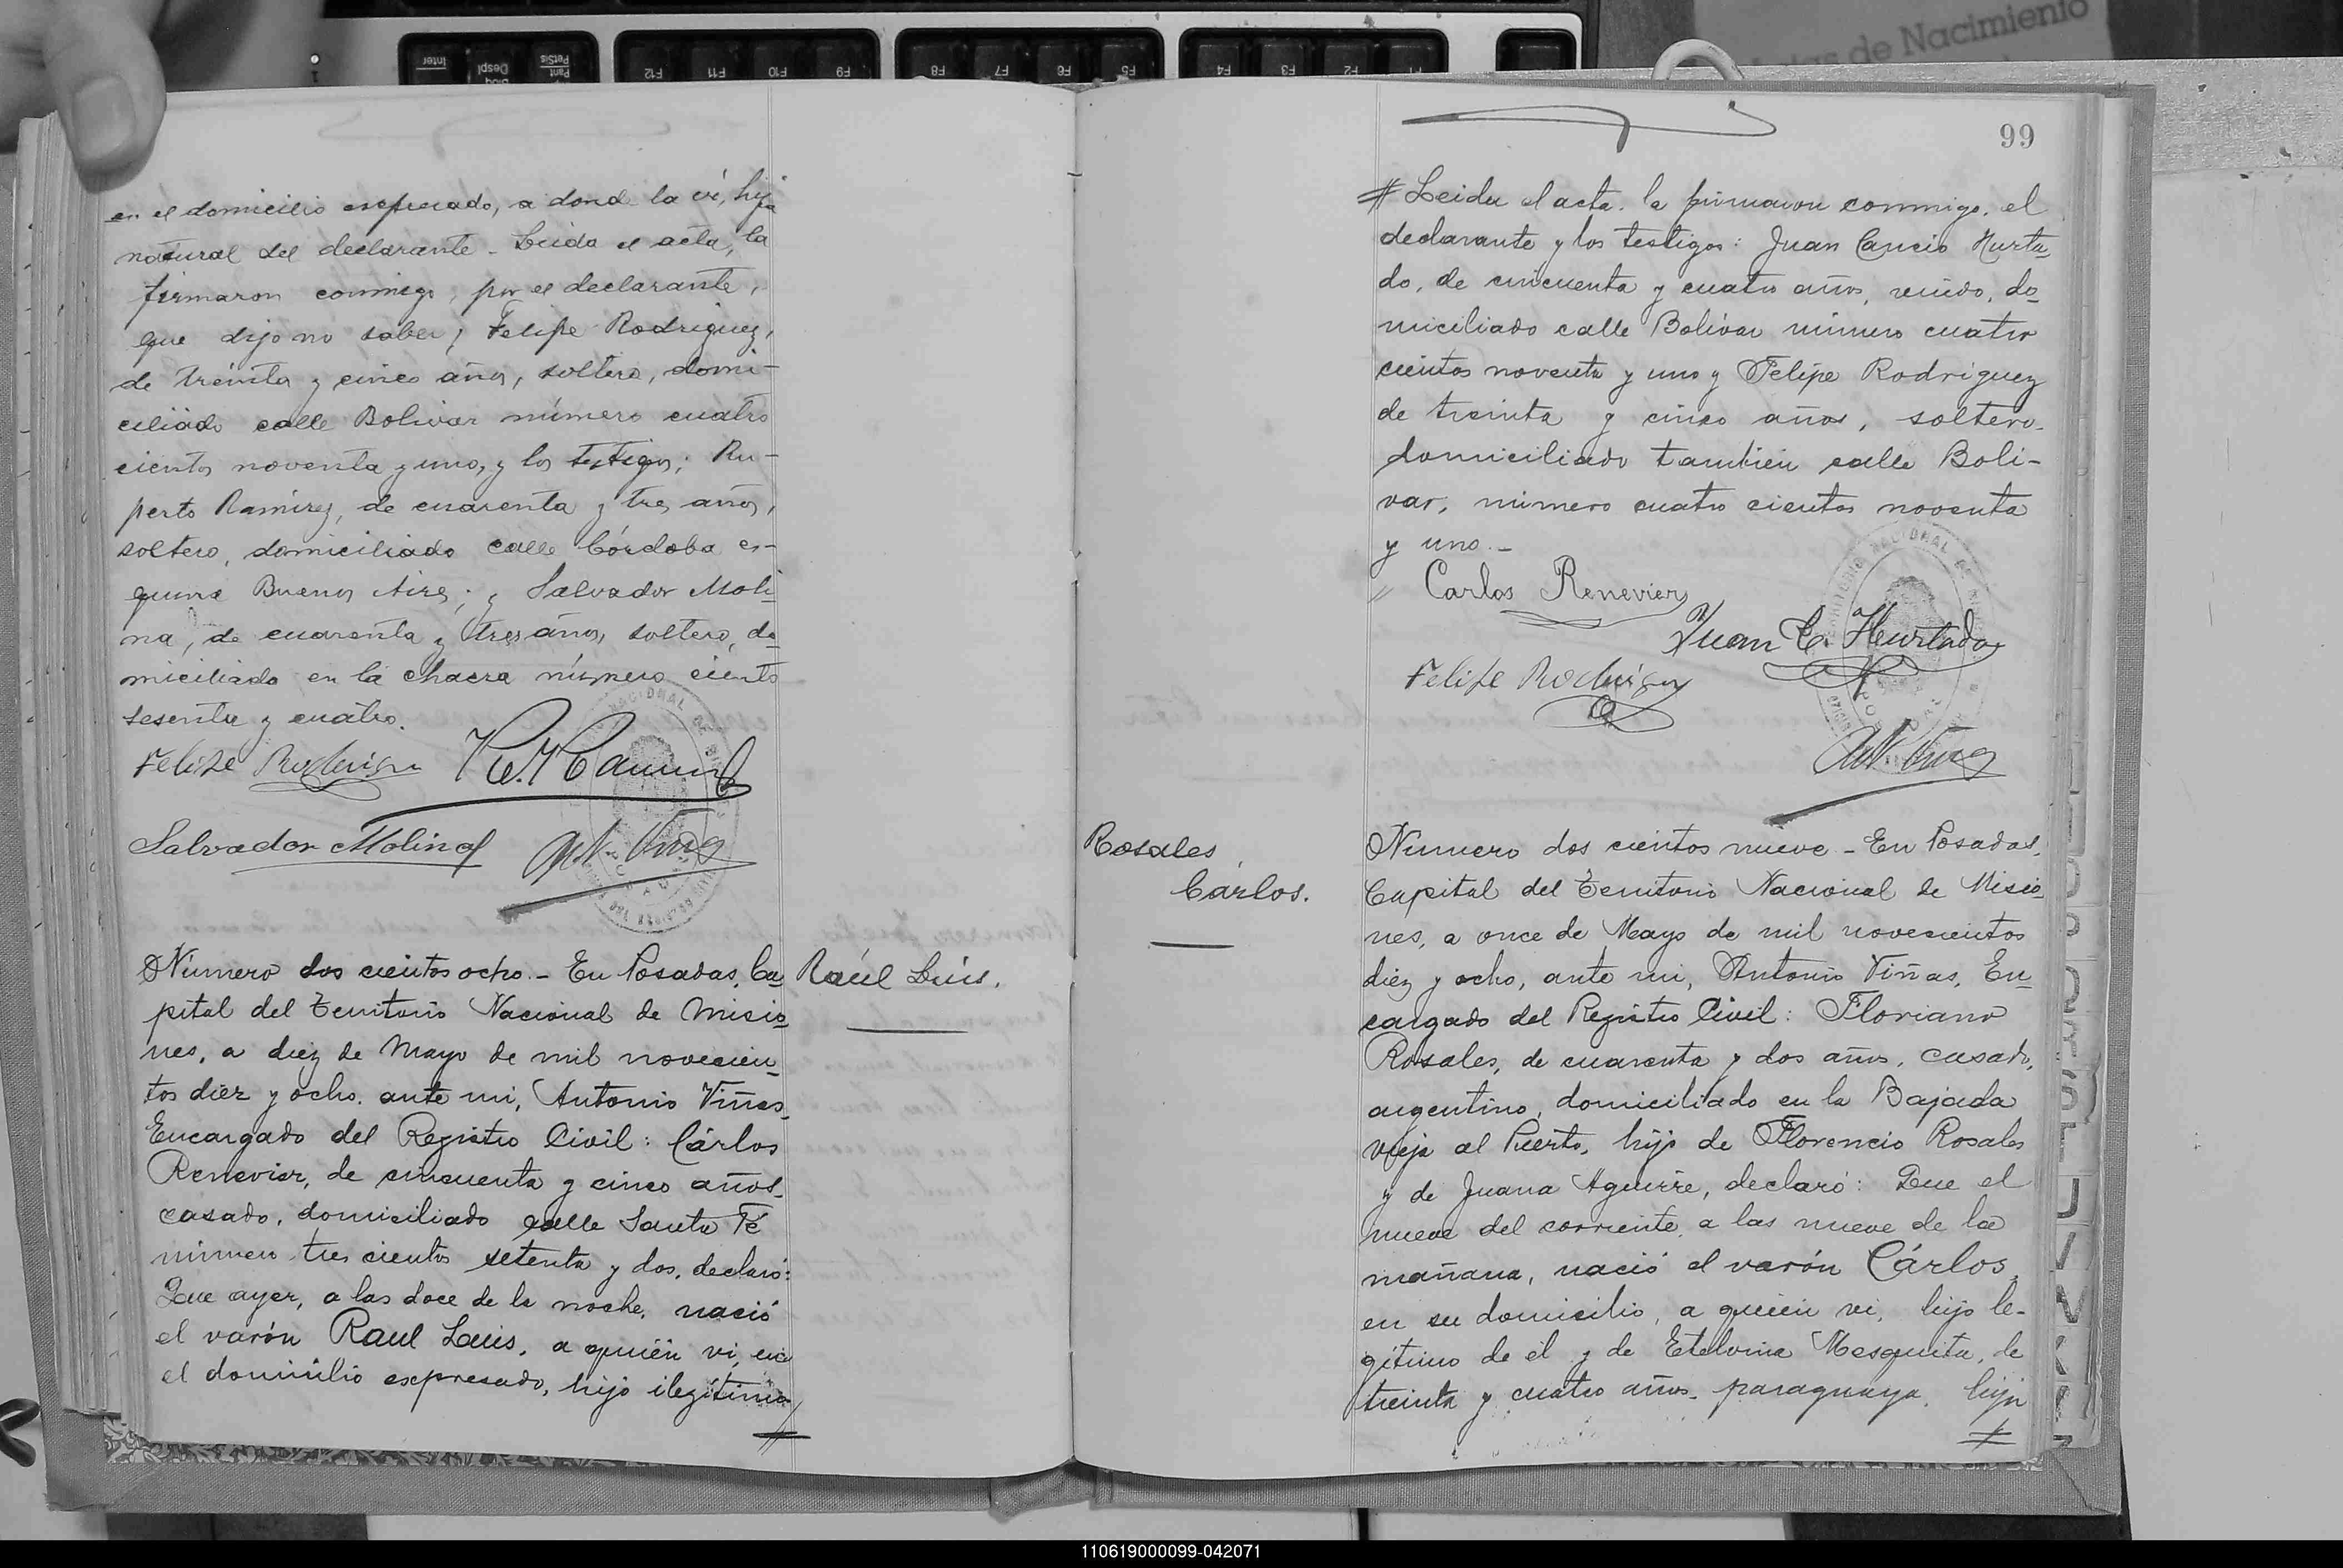 Inter
Despl
Bloq
PetSis
Pant
F12
F11
F10
F9
F8
F7
F6
F5
F4
F3
F2
F1
de Nacimiento
en el domicilio expresado, a donde la ví, hija
natural del declarante - Leida el acta, la
firmaron conmigo, por el declarante,
que dijo no saber, Felipe Rodriguez,
de treinta y cinco años, soltero, domi-
ciliado calle Bolivar número cuatro
cientos noventa y uno, y los testigos: Ru-
perto Ramirez, de cuarenta y tres años,
soltero, domiciliado calle Córdoba es-
quina Buenos Aires; y Salvador Moli
na, de cuarenta y tres años, soltero, do
miciliado en la chacra número ciento
sesenta y cuatro.
Felipe Rodriguez
Salvador Molina
Número dos cientos ocho. - En Posadas, Ca
pital del Territorio Nacional de Misio
nes, a diez de Mayo de mil novecien
tos diez y ocho. ante mi, Antonio Viñas,
Encargado del Registro Civil: Cárlos
Renevier, de cincuenta y cinco años,
casado, domiciliado calle Santa Fé
número tres cientos setenta y dos, declaró:
Que ayer, a las doce de la noche, nació
el varón Raul Luis, a quién vi, en
el domicilio expresado, hijo ilegítimo
Raúl Luis.
99
Leida el acta. la firmaron conmigo. el
declarante y los testigos: Juan Cancio Hurta
do, de cincuenta y cuatro años, viudo, do
miciliado calle Bolívar número cuatro
cientos noventa y uno y Felipe Rodriguez
de treinta y cinco años, soltero.
domiciliado también calle Boli-
var, número cuatro cientos noventa
y uno.-
Carlos Renevier
Juan C. Hurtado
Felipe Rodriguez
Rosales
Cárlos.
Número dos cientos nueve - En Posadas,
Capital del Territorio Nacional de Misio
nes, a once de Mayo de mil novecientos
diez y ocho, ante mi, Antonio Viñas, En
cargado del Registro Civil: Floriano
Rosales, de cuarenta y dos años, casado,
argentino, domiciliado en la Bajada
vieja al Puerto, hijo de Florencio Rosales
y de Juana Aguirre, declaró: Que el
nueve del corriente, a las nueve de la
mañana, nació el varón Cárlos,
en su domicilio, a quién vi, hijo le-
gítimo de él y de Etelvina Mesquita, de
treinta y cuatro años, paraguaya, hija
110619000099-042071